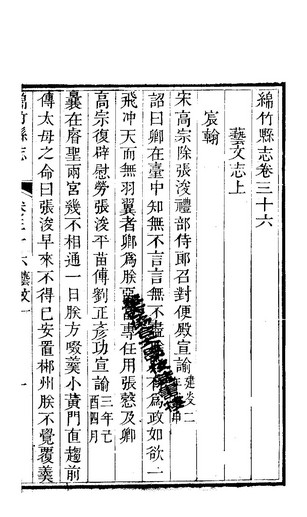 綿竹縣志卷三十六
藝文志上
宸翰
宋高宗除張浚禮部侍郎召對便殿宣諭建炎二年
詔曰卿在臺中知無不言言無不盡為政如欲一
飛沖天而無羽翼者卿為朕專任用張慤及卿
高宗復辟慰勞張浚平苗傅劉正彥功宣諭三年己酉四月
曩在睿聖兩宮幾不相通一日朕方啜羹小黃門直趨前
傳太母之命曰張浚早來不得已安置郴州朕不覺覆羹
綿竹縣志
卷三十六藝文
一